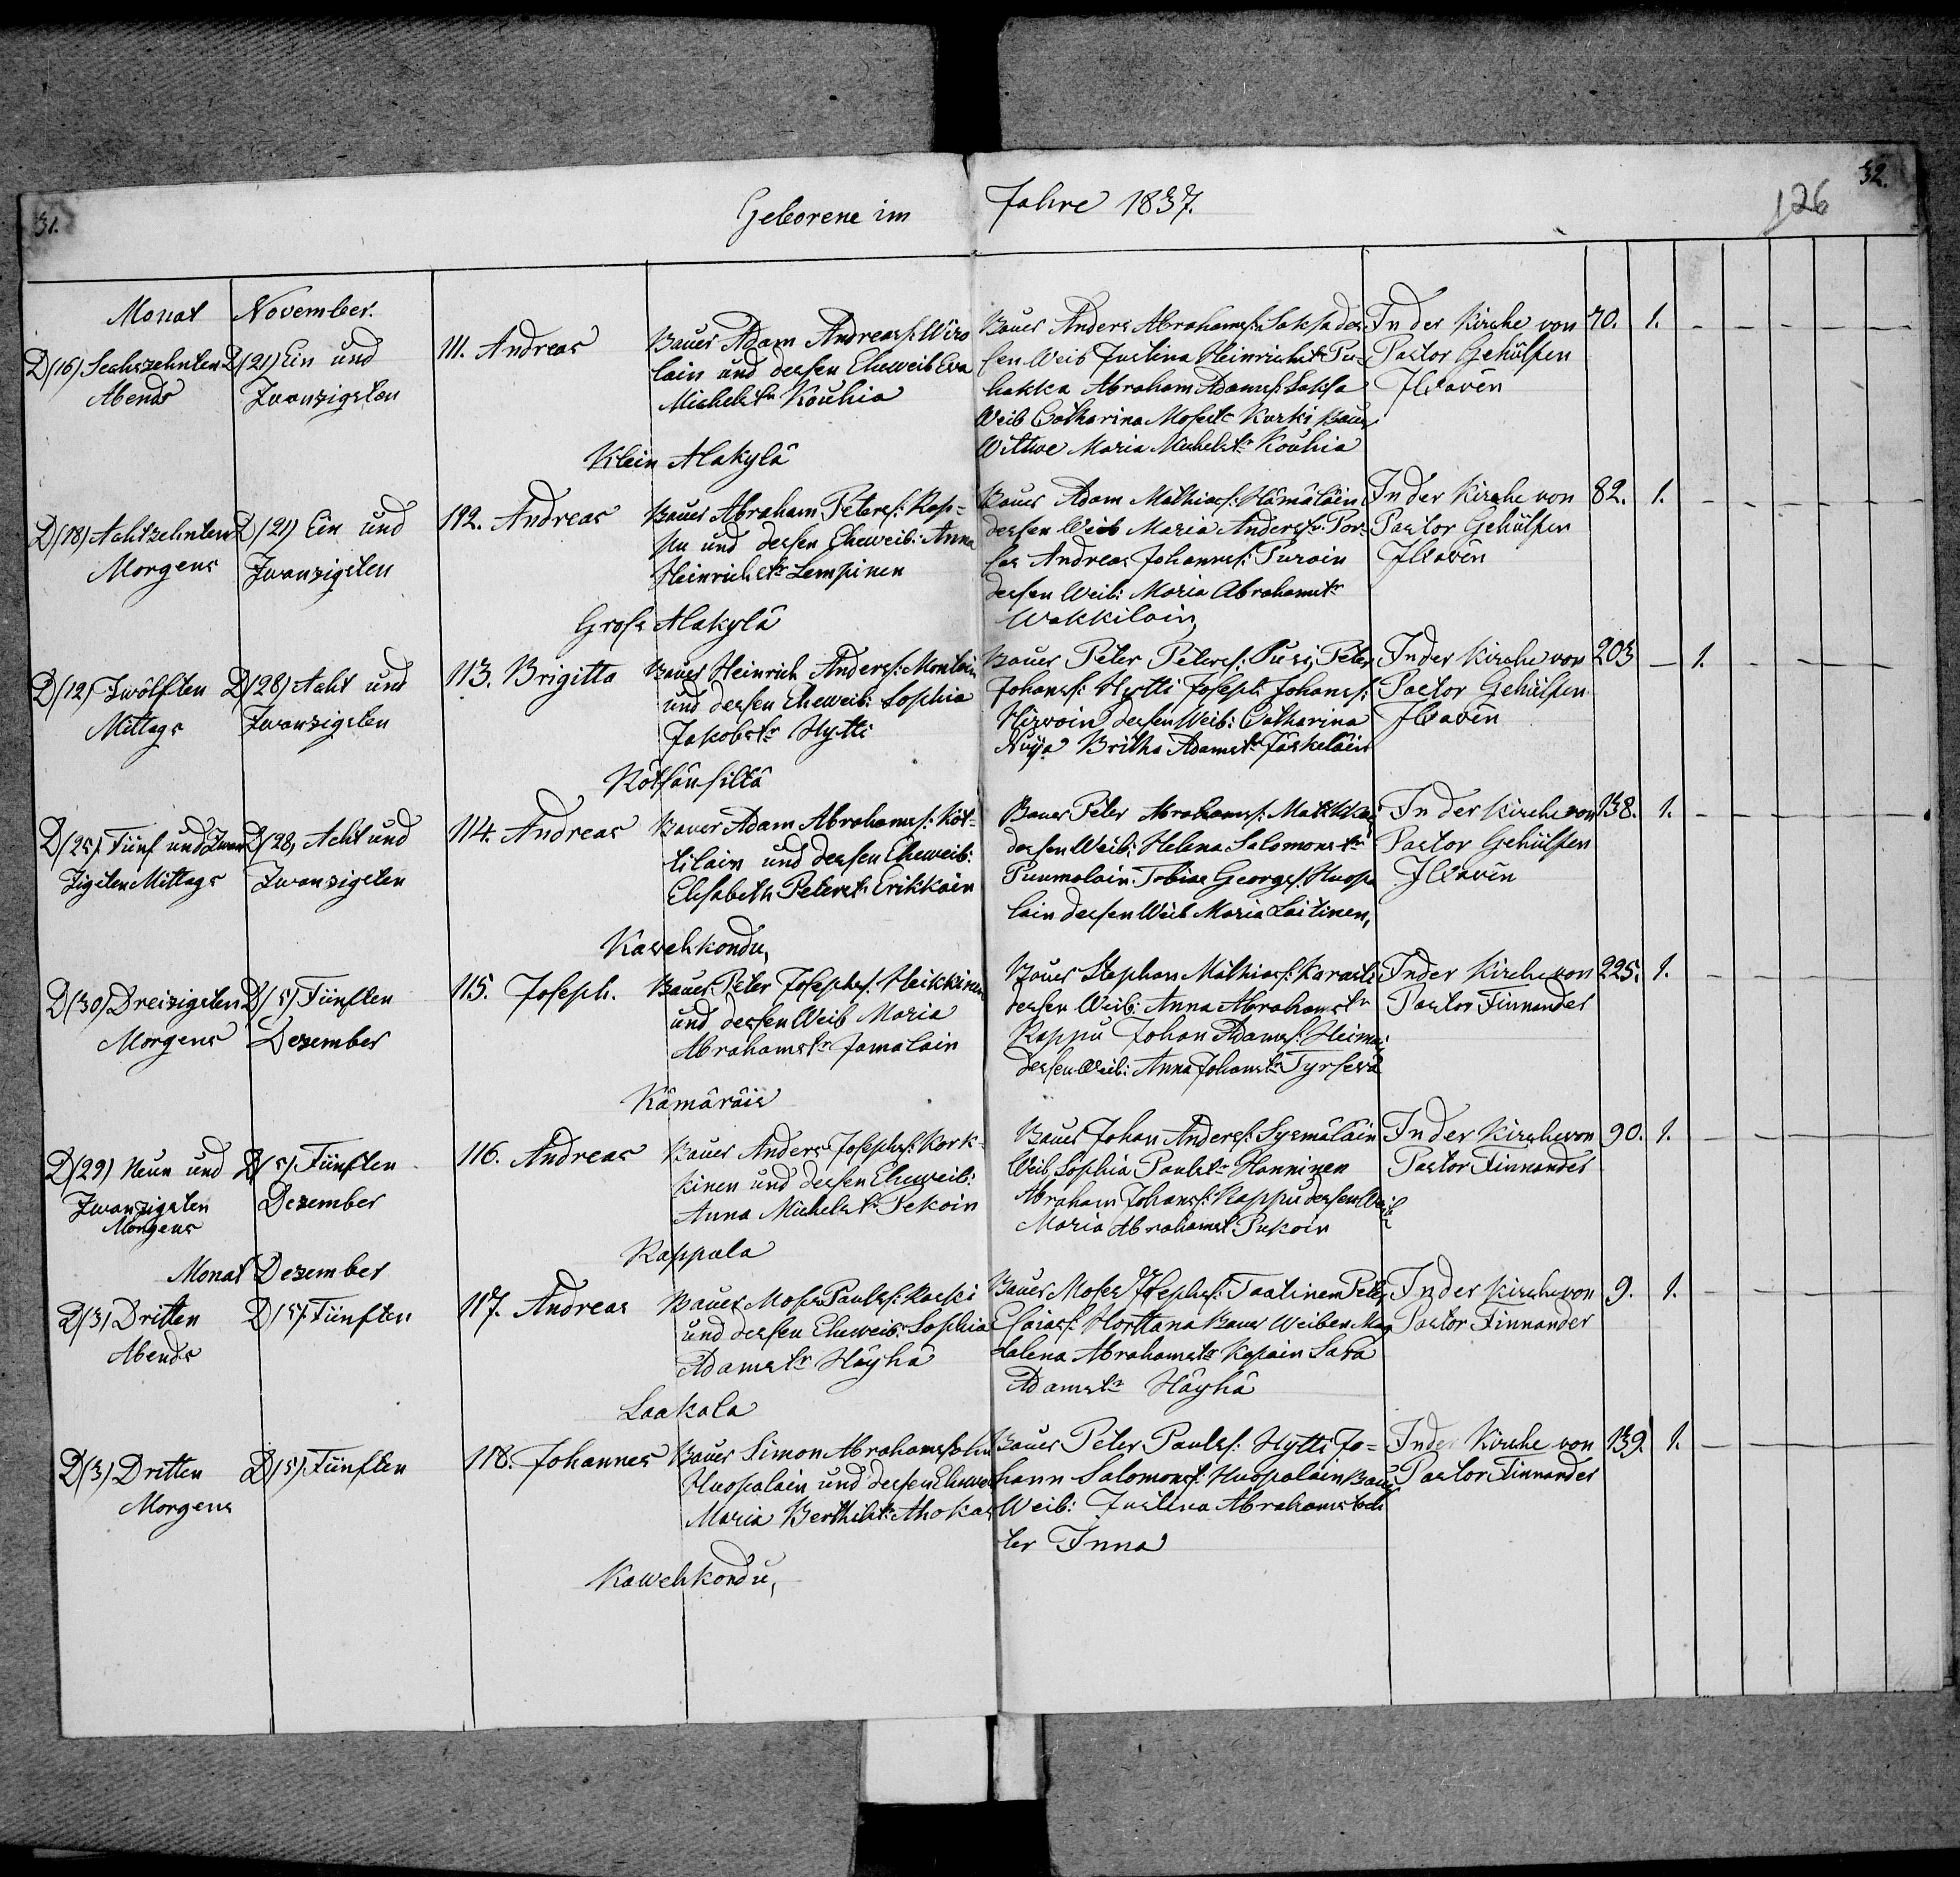 31.
Geborene im Jahre 1837.
126
32.
Monat November.
D (16) Sechszehnten
Abends
D (21) Ein und
Zwanzigsten
111. Andreas
Bauer Adam Andreas s. Wiro
lain und dessen Eheweib Eva
Michelstr Kouhia
Klein Alakylä
Bauer Anders Abrahams s. Saksa des
sen Weib Justina Heinrichstr Pu-
hakka Abraham Adams s. Saksa
Weib Catharina Mosestr Karki Bauer
Wittwe Maria Michelstr Kouhia
In der Kirche von
Pastor Gehülfen
Ilvavén
70. 1. – – – – –
D (18) Achtzehnten
Morgens
D (21) Ein und
Zwanzigsten
112. Andreas
Bauer Abraham Peters s. Rap-
pu und dessen Eheweib: Anna
Heinrichstr Lempinen
Gross Alakylä
Bauer Adam Mathias s. Hämäläin
dessen Weib Maria Anderstr Por-
sas Andreas Johanns s. Turoin
dessen Weib: Maria Abrahamstr
Wakkilain,
In der Kirche von
Pastor Gehülfen
Ilvavén
82. 1. – – – – –
D (12) Zwölften
Mittags
D (28) Acht und
Zwanzigsten
113. Brigitta
Bauer Heinrich Anders s. Montoin
und dessen Eheweib: Sophia
Jakobstr Hytti
Kötsänsiltä
Bauer Peter Peters s. Pusi, Peter
Johans s. Hytti Joseph Johans s.
Hirwoin dessen Weib: Catharina
Nuija Britha Adamstr Jäskeläin
In der Kirche von
Pastor Gehülfen
Ilvavén
203 – 1. – – – –
D (25) Fünf und Zwan
zigsten Mittags
D (28) Acht und
Zwanzigsten
114. Andreas
Bauer Adam Abrahams s. Köt-
tilain und dessen Eheweib:
Elisabeth Peterstr Erikkäin
Kawehkondu,
Bauer Peter Abrahams s. Matikka
dessen Weib: Helena Salomonstr
Puumalain Tobias Georgs s. Huopa
lain dessen Weib Maria Laitinen,
In der Kirche von
Pastor Gehülfen
Ilvavén
138. 1. – – – – –
D (30) Dreizigsten
Morgens
D (5) Fünften
Dezember
115. Joseph.
Bauer Peter Josephs s. Heikkinen
und dessen Weib Maria
Abrahamstr Jamalain
Kämäräis
Bauer Stephan Mathias s. Karasti
dessen Weib: Anna Abrahamstr
Rappu Johan Adams s. Heimoi
dessen Weib: Anna Johanstr Tyrsewä
In der Kirche von
Pastor Finnander
225. 1. – – – – –
D (29) Neun und
Zwanzigsten
Morgens
D (5) Fünften
Dezember
116. Andreas
Bauer Anders Josephs s. Kork-
kinen und dessen Eheweib:
Anna Michelstr Pekoin
Rappula
Bauer Johan Anders s. Sysmäläin
Weib Sophia Paulstr Hanninen
Abraham Johans s. Rappu dessen Weib
Maria Abrahamst Pukoin
In der Kirche von
Pastor Finnander
90. 1. – – – – –
Monat Dezember
D (3) Dritten
Abends
D (5) Fünften
117. Andreas
Bauer Moses Pauls s. Raski
und dessen Eheweib: Sophia
Adamstr Häyhä
Laakola
Bauer Moses Josephs s. Taatinen Peter
Esaias s. Horttana Bauer Weiber Mag
dalena Abrahamstr Kopain Sara
Adamstr Häyhä
In der Kirche von
Pastor Finnander
9. 1. – – – – –
D (3) Dritten
Morgens
D (5) Fünften
118. Johannes
Bauer Simon Abrahamssohn
Huopalain und dessen Eheweib
Maria Berthilstr Ahokas
Kawehkondu,
Bauer Peter Pauls s. Hytti Jo=
hann Salomons s. Huopalain Bauer
Weib: Justina Abrahamstoch
ter Inna
In der Kirche von
Pastor Finnander
139. 1. – – – – –